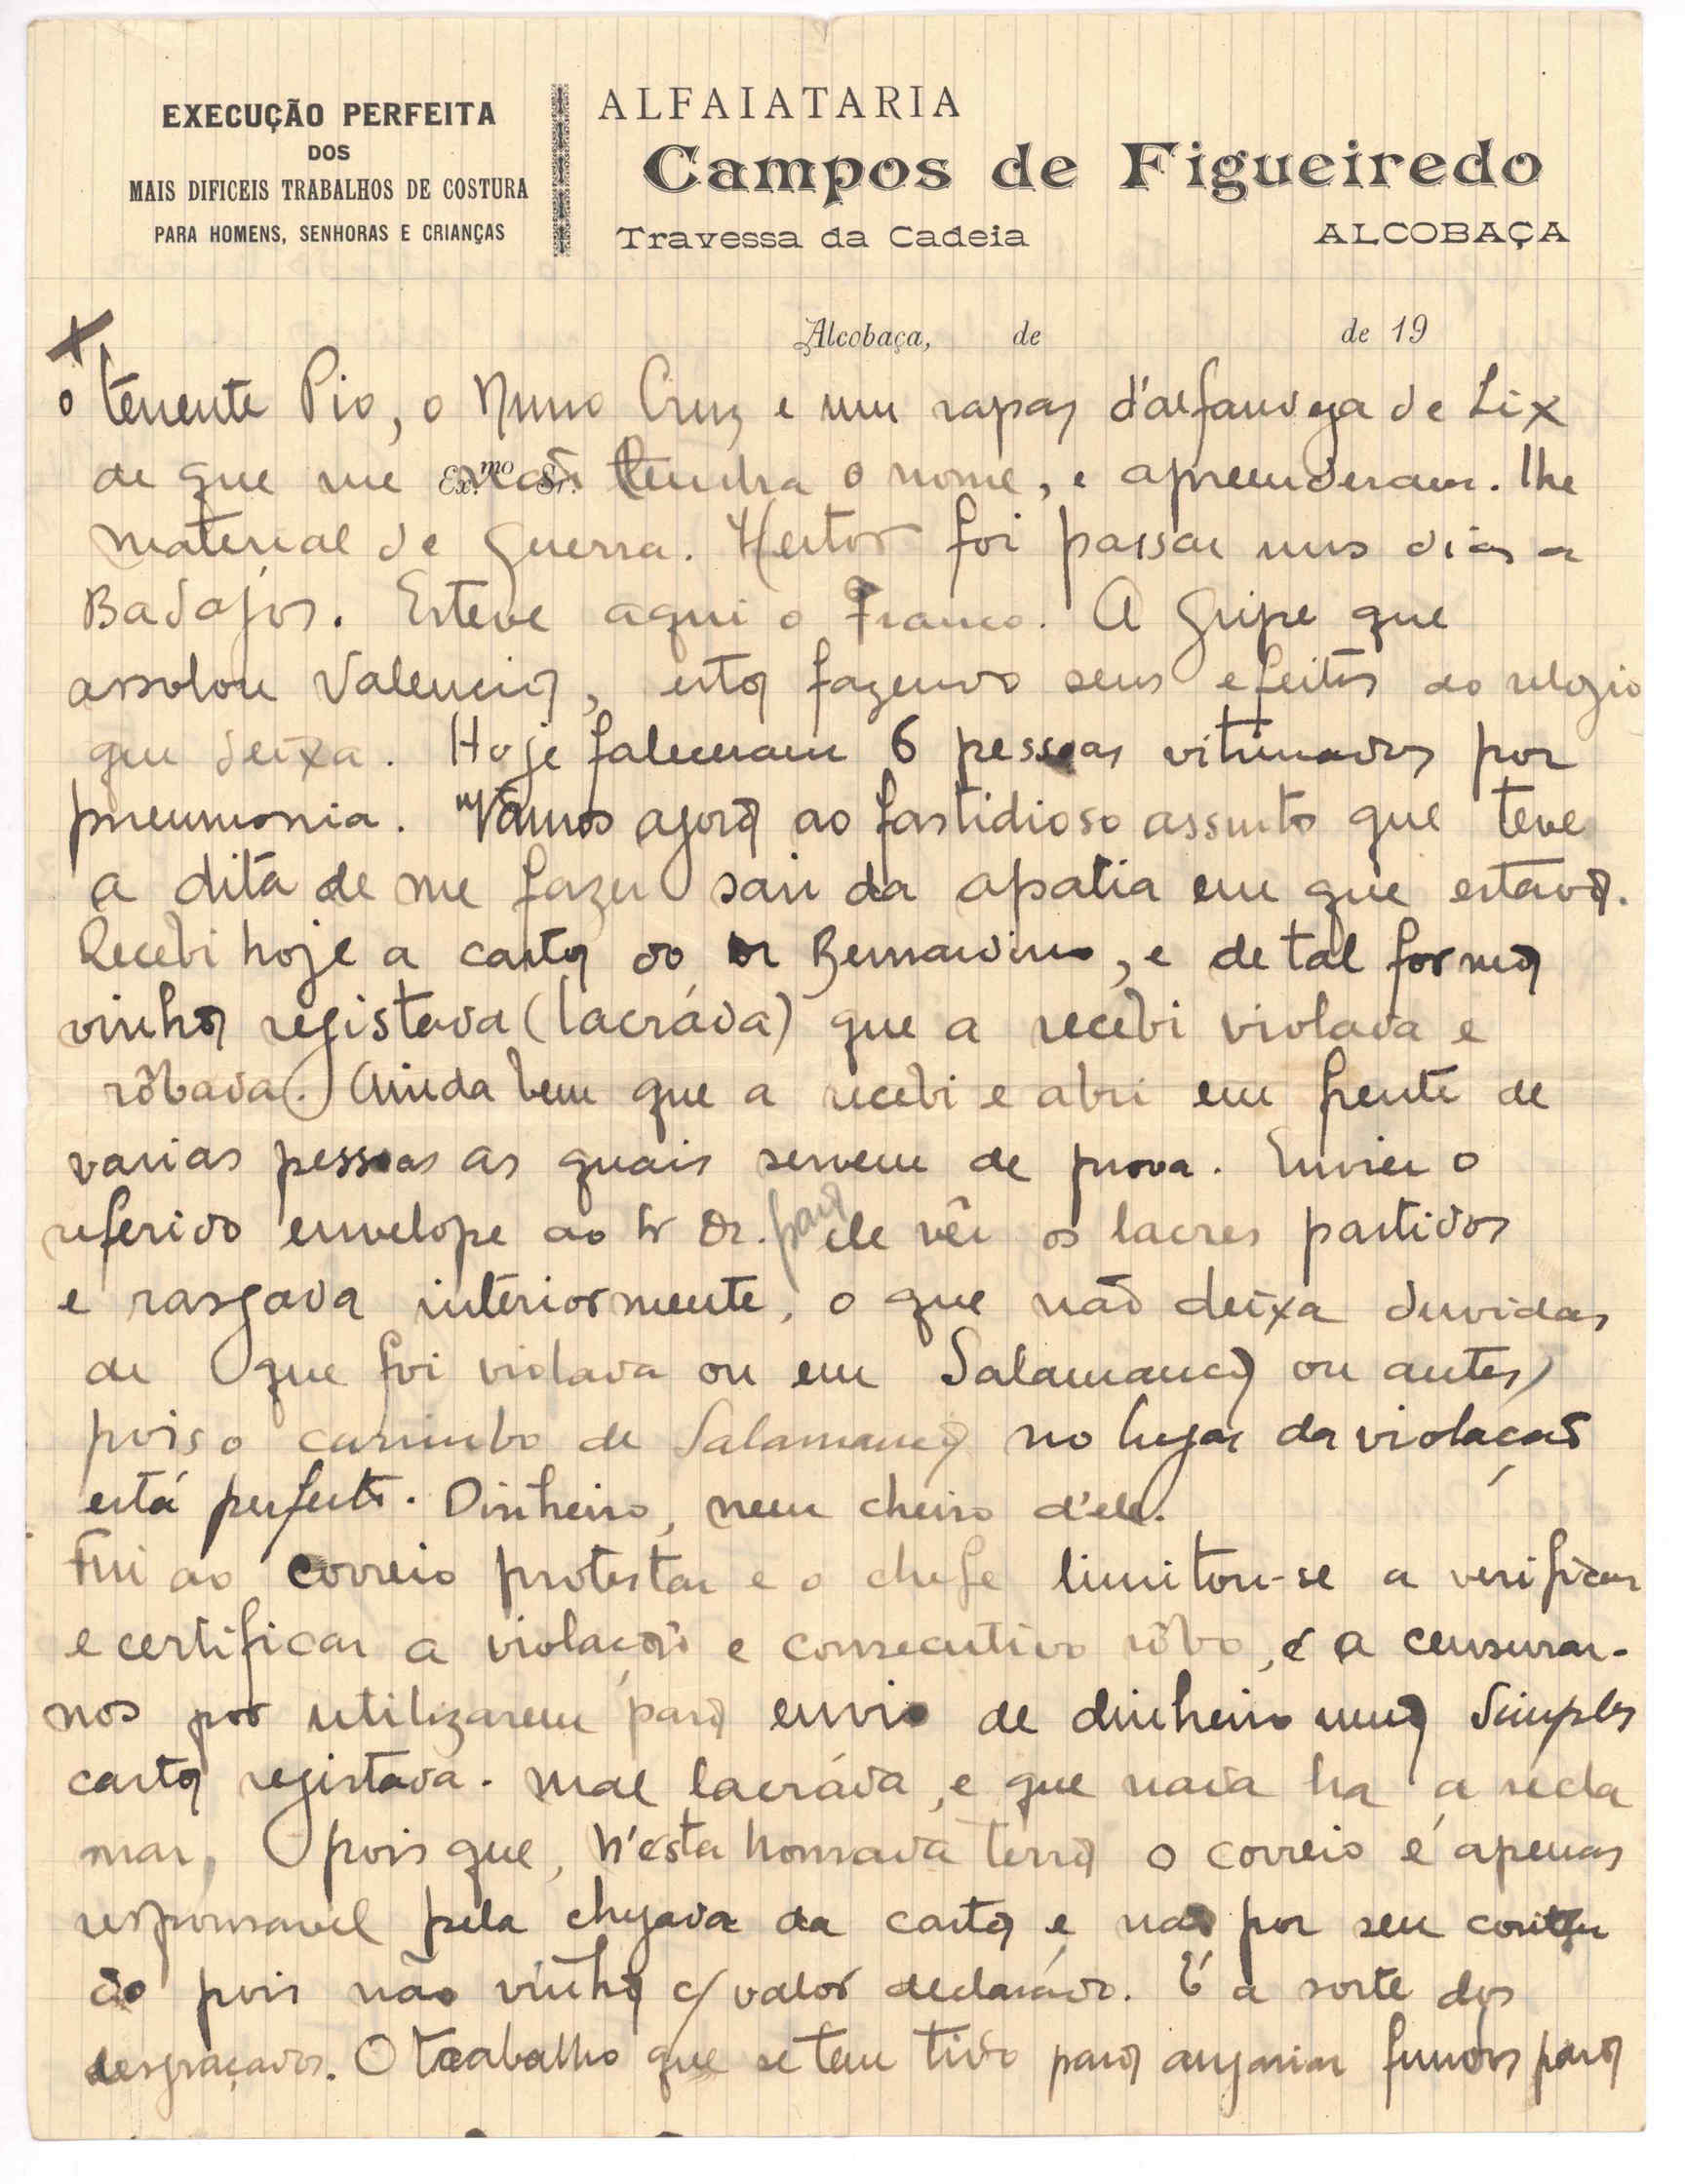 EXECUÇÃO PERFEITA
DOS
MAIS DIFICEIS TRABALHOS DE COSTURA
PARA HOMENS, SENHORAS E CRIANÇAS
ALFAIATARIA
Campos de Figueiredo
Travessa da Cadeia ALCOBAÇA
Alcobaça, de de 19
o tenente Pio, o Nuno Cruz e um rapaz d'alfandega de Lix
de que me não lembra o nome, e apreenderam-lhe
Ex.mo Sr.
material de guerra. Heitor foi passar uns dias a
Badajós. Esteve aqui o Franco. A Gripe que
assolou Valencia, está fazendo seus efeitos ao relogio
que deixa. Hoje faleceram 6 pessoas vitimados por
pneumonia. Vâmos agora ao fastidioso assunto que teve
a dita de me fazer sair da apatia em que estava.
Recebi hoje a carta do Sr Bernardino, e de tal forma
vinha registada (lacráda) que a recebi violada e
rôbada. Ainda bem que a recebi e abri em frente de
varias pessoas as quais servem de prova. Enviei o
referido envelope ao Sr Dr. para ele vêr os lacres partidos
e rasgada interiormente, o que não deixa duvidas
de que foi violada ou em Salamanca ou antes,
pois o carimbo de Salamanca no lugar da violação
está perfeito. Dinheiro, nem cheiro d'ele.
Fui ao correio protestar e o chefe limitou-se a verificar
e certificar a violação e consecutivo rôbo, e a censurar-
nos por utilizarem para envio de dinheiro uma simples
carta registada. mal lacráda, e que nada ha a recla
mar, pois que, n'esta honrada terra o correio é apenas
responsavel pela chegada da carta e não por seu conteu
do pois não vinha c/ valor declarádo. É a sorte dos
desgraçados. O trabalho que se tem tido para angariar fundos para